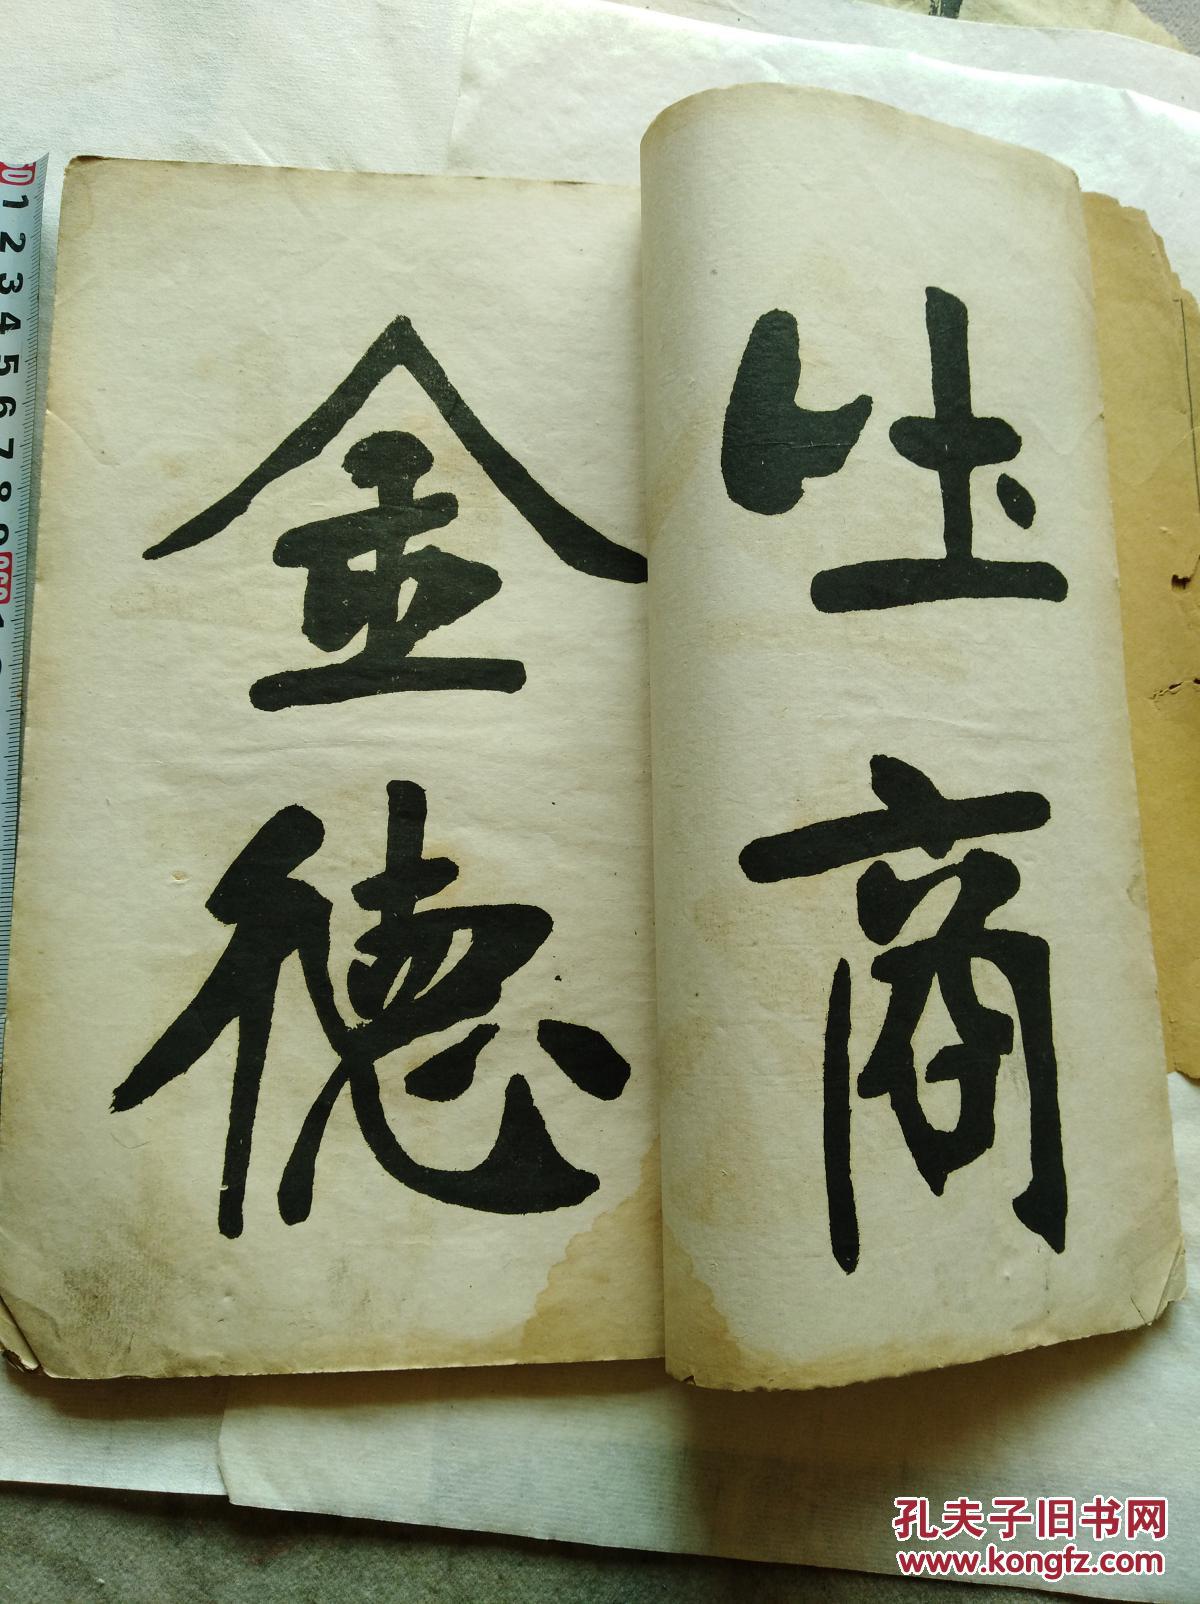 吐商
金德
1 2 3 4 5 6 7 8 9
孔夫子旧书网
www.kongfz.com